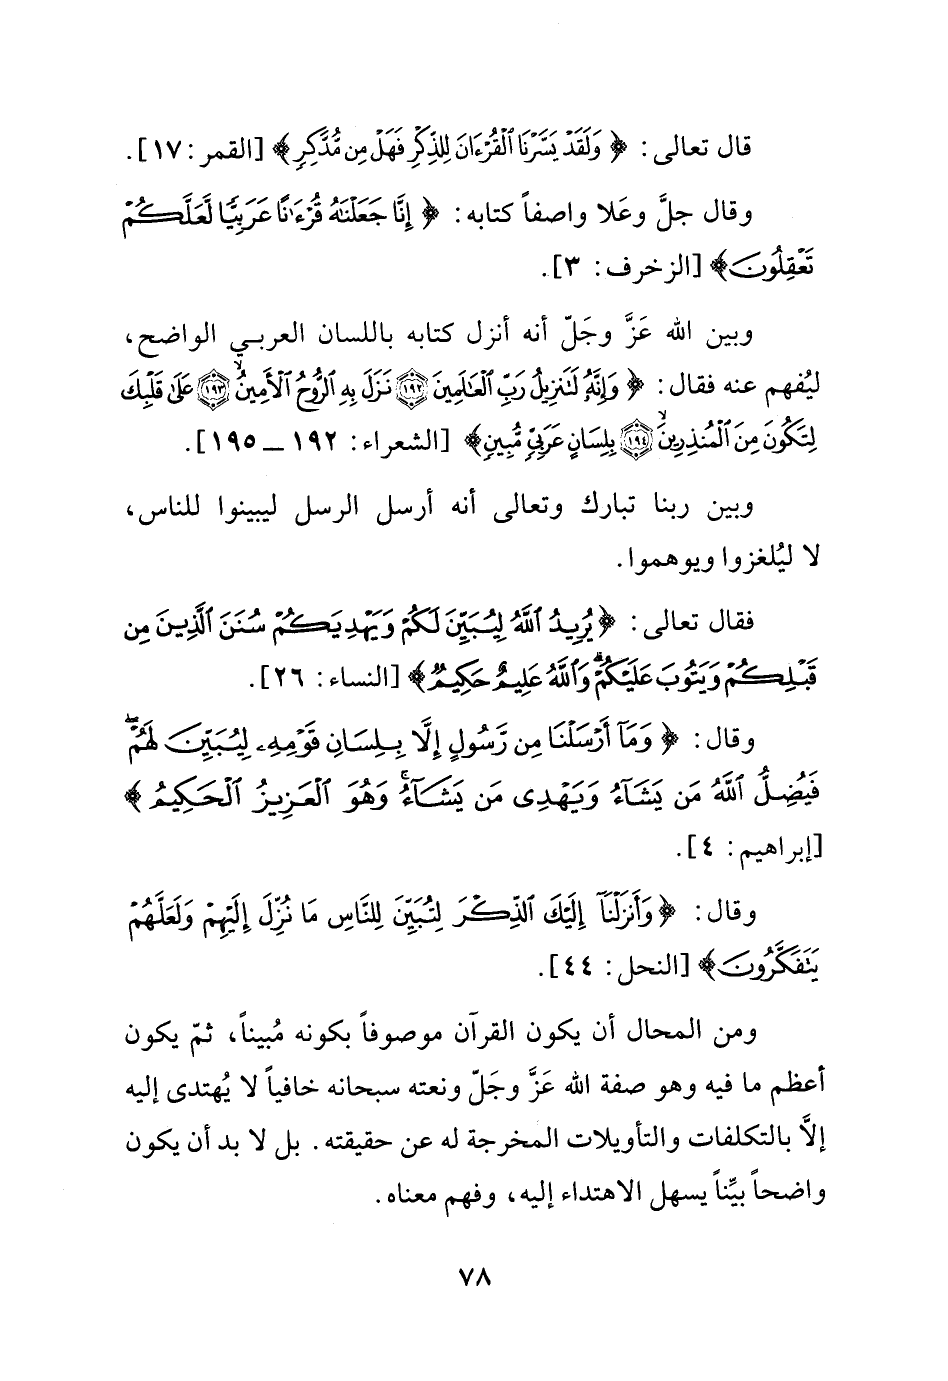 قال تعالى: ﴿ وَلَقَدْ يَسَّرْنَا ٱلْقُرْءَانَ لِلذِّكْرِ فَهَلْ مِن مُّدَّكِرٍ ﴾ [القمر: ١٧].
وقال جلَّ وعَلا واصفاً كتابه: ﴿ إِنَّا جَعَلْنَٰهُ قُرْءَٰنًا عَرَبِيًّا لَّعَلَّكُمْ
تَعْقِلُونَ ﴾ [الزخرف: ٣].
وبين الله عَزَّ وجَلّ أنه أنزل كتابه باللسان العربي الواضح،
ليُفهم عنه فقال: ﴿ وَإِنَّهُۥ لَتَنزِيلُ رَبِّ ٱلْعَٰلَمِينَ ١٩٢ نَزَلَ بِهِ ٱلرُّوحُ ٱلْأَمِينُ ١٩٣ عَلَىٰ قَلْبِكَ
لِتَكُونَ مِنَ ٱلْمُنذِرِينَ ١٩٤ بِلِسَانٍ عَرَبِيٍّ مُّبِينٍ ﴾ [الشعراء: ١٩٢ ــ ١٩٥].
وبين ربنا تبارك وتعالى أنه أرسل الرسل ليبينوا للناس،
لا ليُلغزوا ويوهموا.
فقال تعالى: ﴿ يُرِيدُ ٱللَّهُ لِيُبَيِّنَ لَكُمْ وَيَهْدِيَكُمْ سُنَنَ ٱلَّذِينَ مِن
قَبْلِكُمْ وَيَتُوبَ عَلَيْكُمْ ۗ وَٱللَّهُ عَلِيمٌ حَكِيمٌ ﴾ [النساء: ٢٦].
وقال: ﴿ وَمَآ أَرْسَلْنَا مِن رَّسُولٍ إِلَّا بِلِسَانِ قَوْمِهِۦ لِيُبَيِّنَ لَهُمْ ۖ
فَيُضِلُّ ٱللَّهُ مَن يَشَآءُ وَيَهْدِى مَن يَشَآءُ ۚ وَهُوَ ٱلْعَزِيزُ ٱلْحَكِيمُ ﴾
[إبراهيم: ٤].
وقال: ﴿ وَأَنزَلْنَآ إِلَيْكَ ٱلذِّكْرَ لِتُبَيِّنَ لِلنَّاسِ مَا نُزِّلَ إِلَيْهِمْ وَلَعَلَّهُمْ
يَتَفَكَّرُونَ ﴾ [النحل: ٤٤].
ومن المحال أن يكون القرآن موصوفاً بكونه مُبيناً، ثمّ يكون
أعظم ما فيه وهو صفة الله عَزَّ وجَلّ ونعته سبحانه خافياً لا يُهتدى إليه
إلاَّ بالتكلفات والتأويلات المخرجة له عن حقيقته. بل لا بد أن يكون
واضحاً بيِّناً يسهل الاهتداء إليه، وفهم معناه.
٧٨